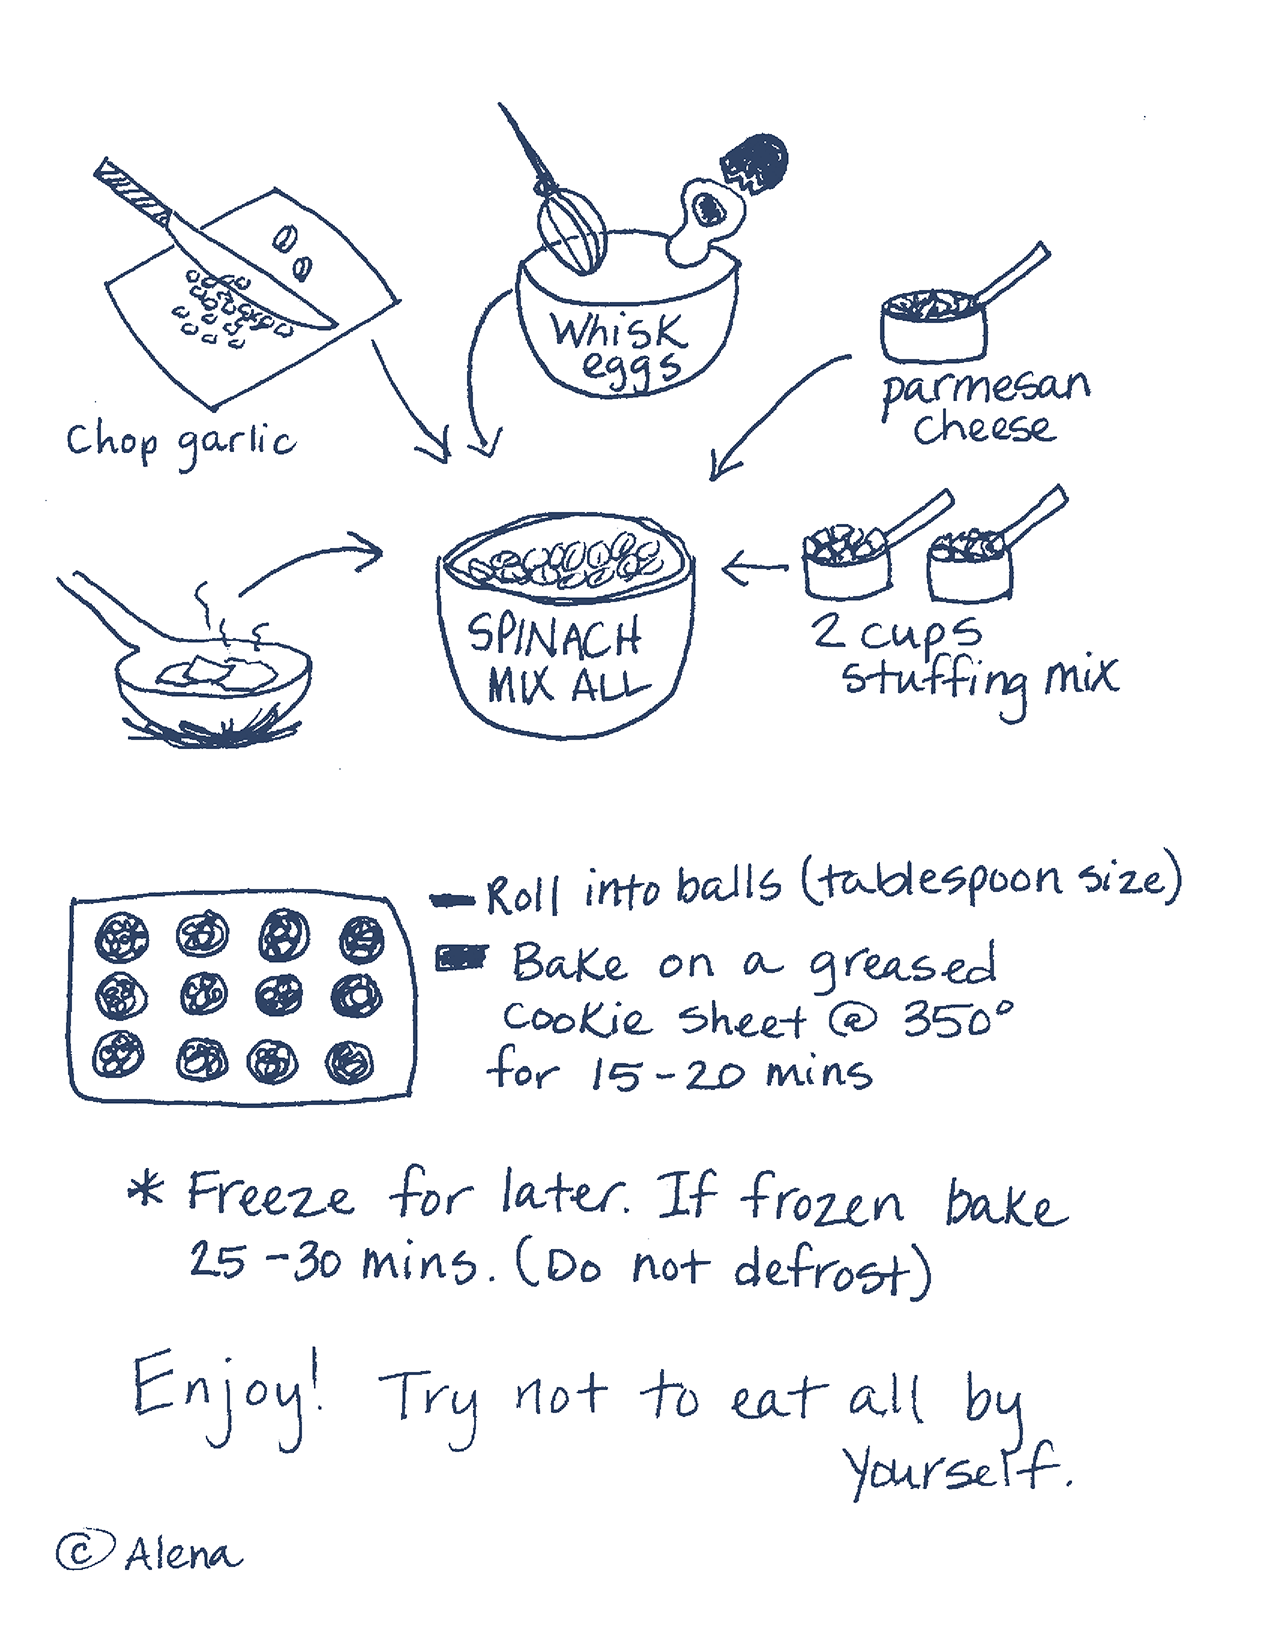 Whisk
eggs
Chop garlic
parmesan
cheese
SPINACH
MIX ALL
2 cups
stuffing mix
- Roll into balls (tablespoon size)
- Bake on a greased
cookie sheet @ 350°
for 15-20 mins
* Freeze for later. If frozen bake
25-30 mins. (Do not defrost)
Enjoy! Try not to eat all by
yourself.
© Alena